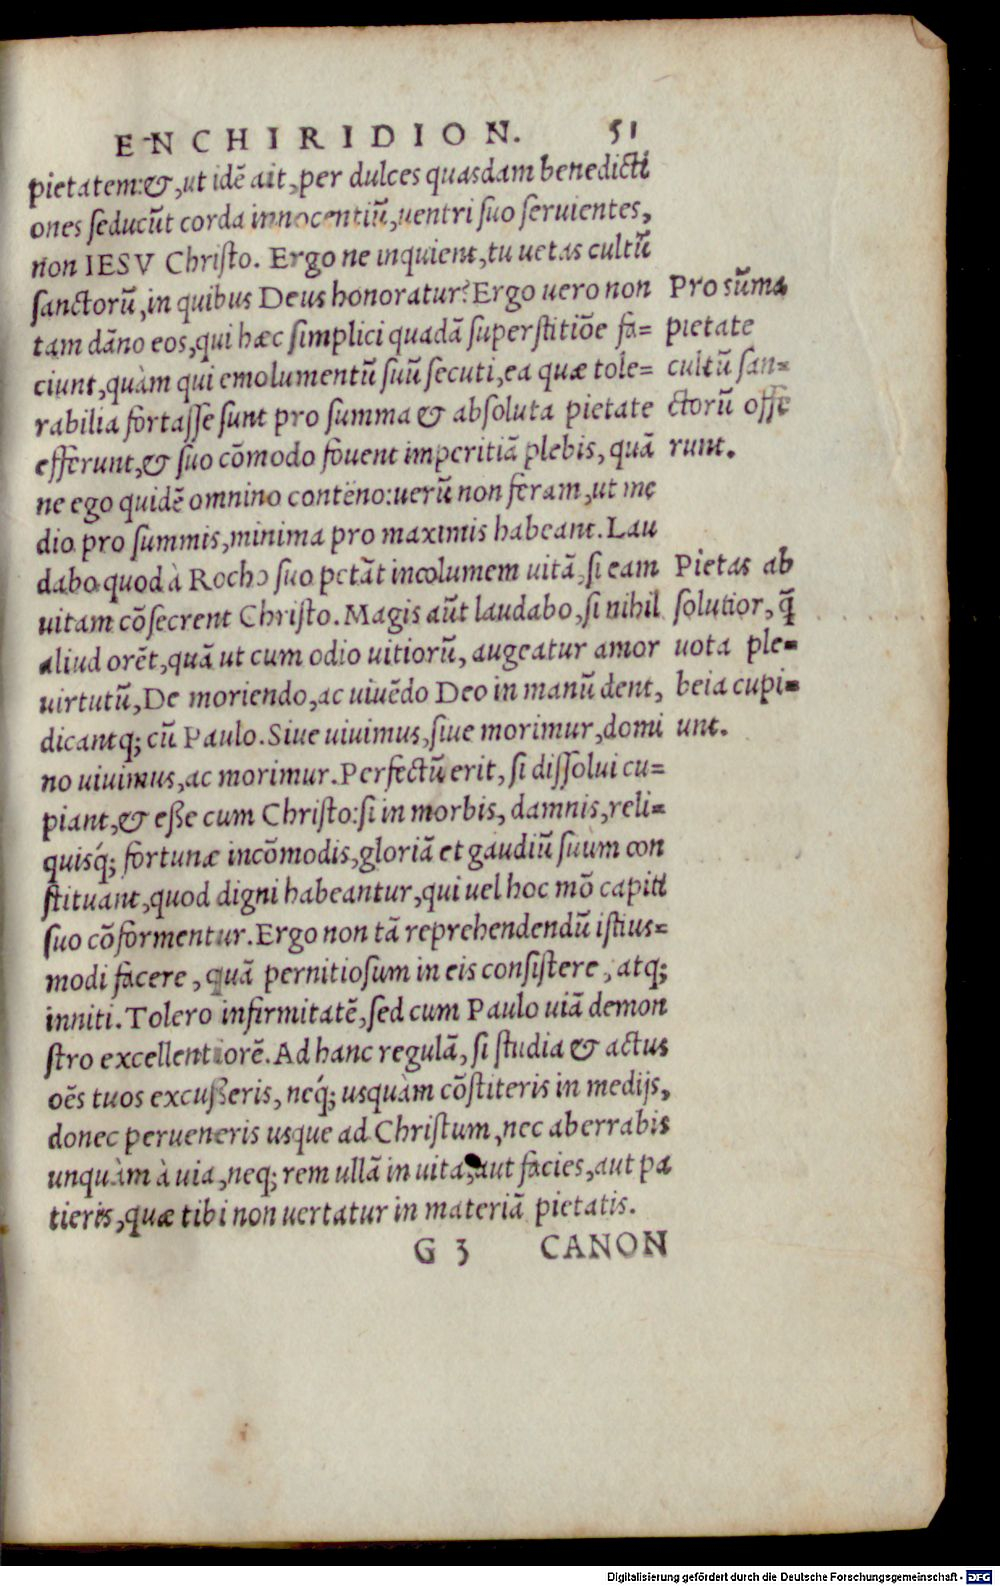 ENCHIRIDION. 51
pietatem:&, ut idē ait, per dulces quasdam benedicti
ones seducūt corda innocentiū, uentri suo seruientes,
non IESV Christo. Ergo ne inquient, tu uetas cultū
sanctorū, in quibus Deus honoratur? Ergo uero non
tam dāno eos, qui hæc simplici quadā superstitiōe fa=
ciunt, quàm qui emolumentū suū secuti, ea quæ tole=
rabilia fortasse sunt pro summa & absoluta pietate
efferunt, & suo cōmodo fouent imperitiā plebis, quā
ne ego quidē omnino contēno: uerū non feram, ut me
dio pro summis, minima pro maximis habeant. Lau
dabo quod à Rocho suo petāt incolumem uitā, si eam
uitam cōsecrent Christo. Magis aūt laudabo, si nihil
aliud orēt, quā ut cum odio uitiorū, augeatur amor
uirtutū, De moriendo, ac uiuēdo Deo in manū dent,
dicantq; cū Paulo. Siue uiuimus, siue morimur, domi
no uiuimus, ac morimur. Perfectū erit, si dissolui cu=
piant, & eße cum Christo: si in morbis, damnis, reli=
quisq́; fortunæ incōmodis, gloriā et gaudiū suum con
stituant, quod digni habeantur, qui uel hoc mō capiti
suo cōformentur. Ergo non tā reprehendendū istius=
modi facere, quā pernitiosum in eis consistere, atq;
inniti. Tolero infirmitatē, sed cum Paulo uiā demon
stro excellentiorē. Ad hanc regulā, si studia & actus
oēs tuos excußeris, neq́; usquàm cōstiteris in medijs,
donec perueneris usque ad Christum, nec aberrabis
unquàm à uia, neq; rem ullā in uita, aut facies, aut pa
tieris, quæ tibi non uertatur in materiā pietatis.
G 3 CANON
Pro sūma
pietate
cultū san=
ctorū offe
runt.
Pietas ab
solutior, q̄
uota ple=
beia cupi=
unt.
Digitalisierung gefördert durch die Deutsche Forschungsgemeinschaft - DFG